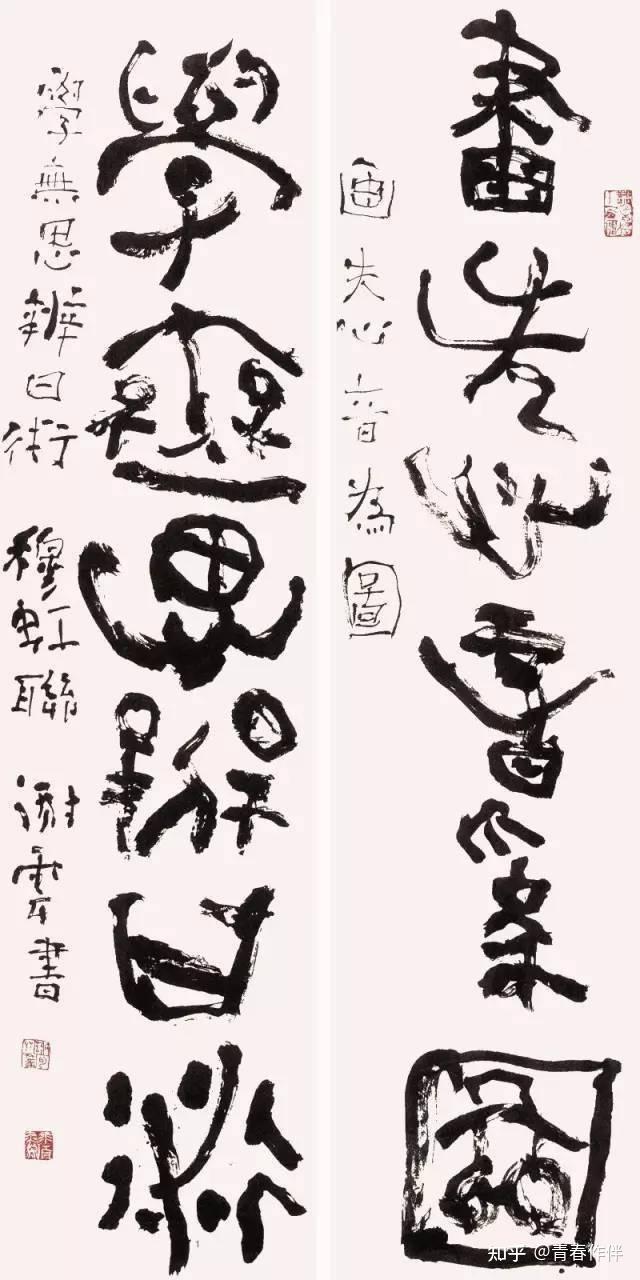 畫失心音為圖
画失心音為圖
學無思辨曰術
學無思辨曰術 穆虹聯 謝雲書
知乎 @青春作伴